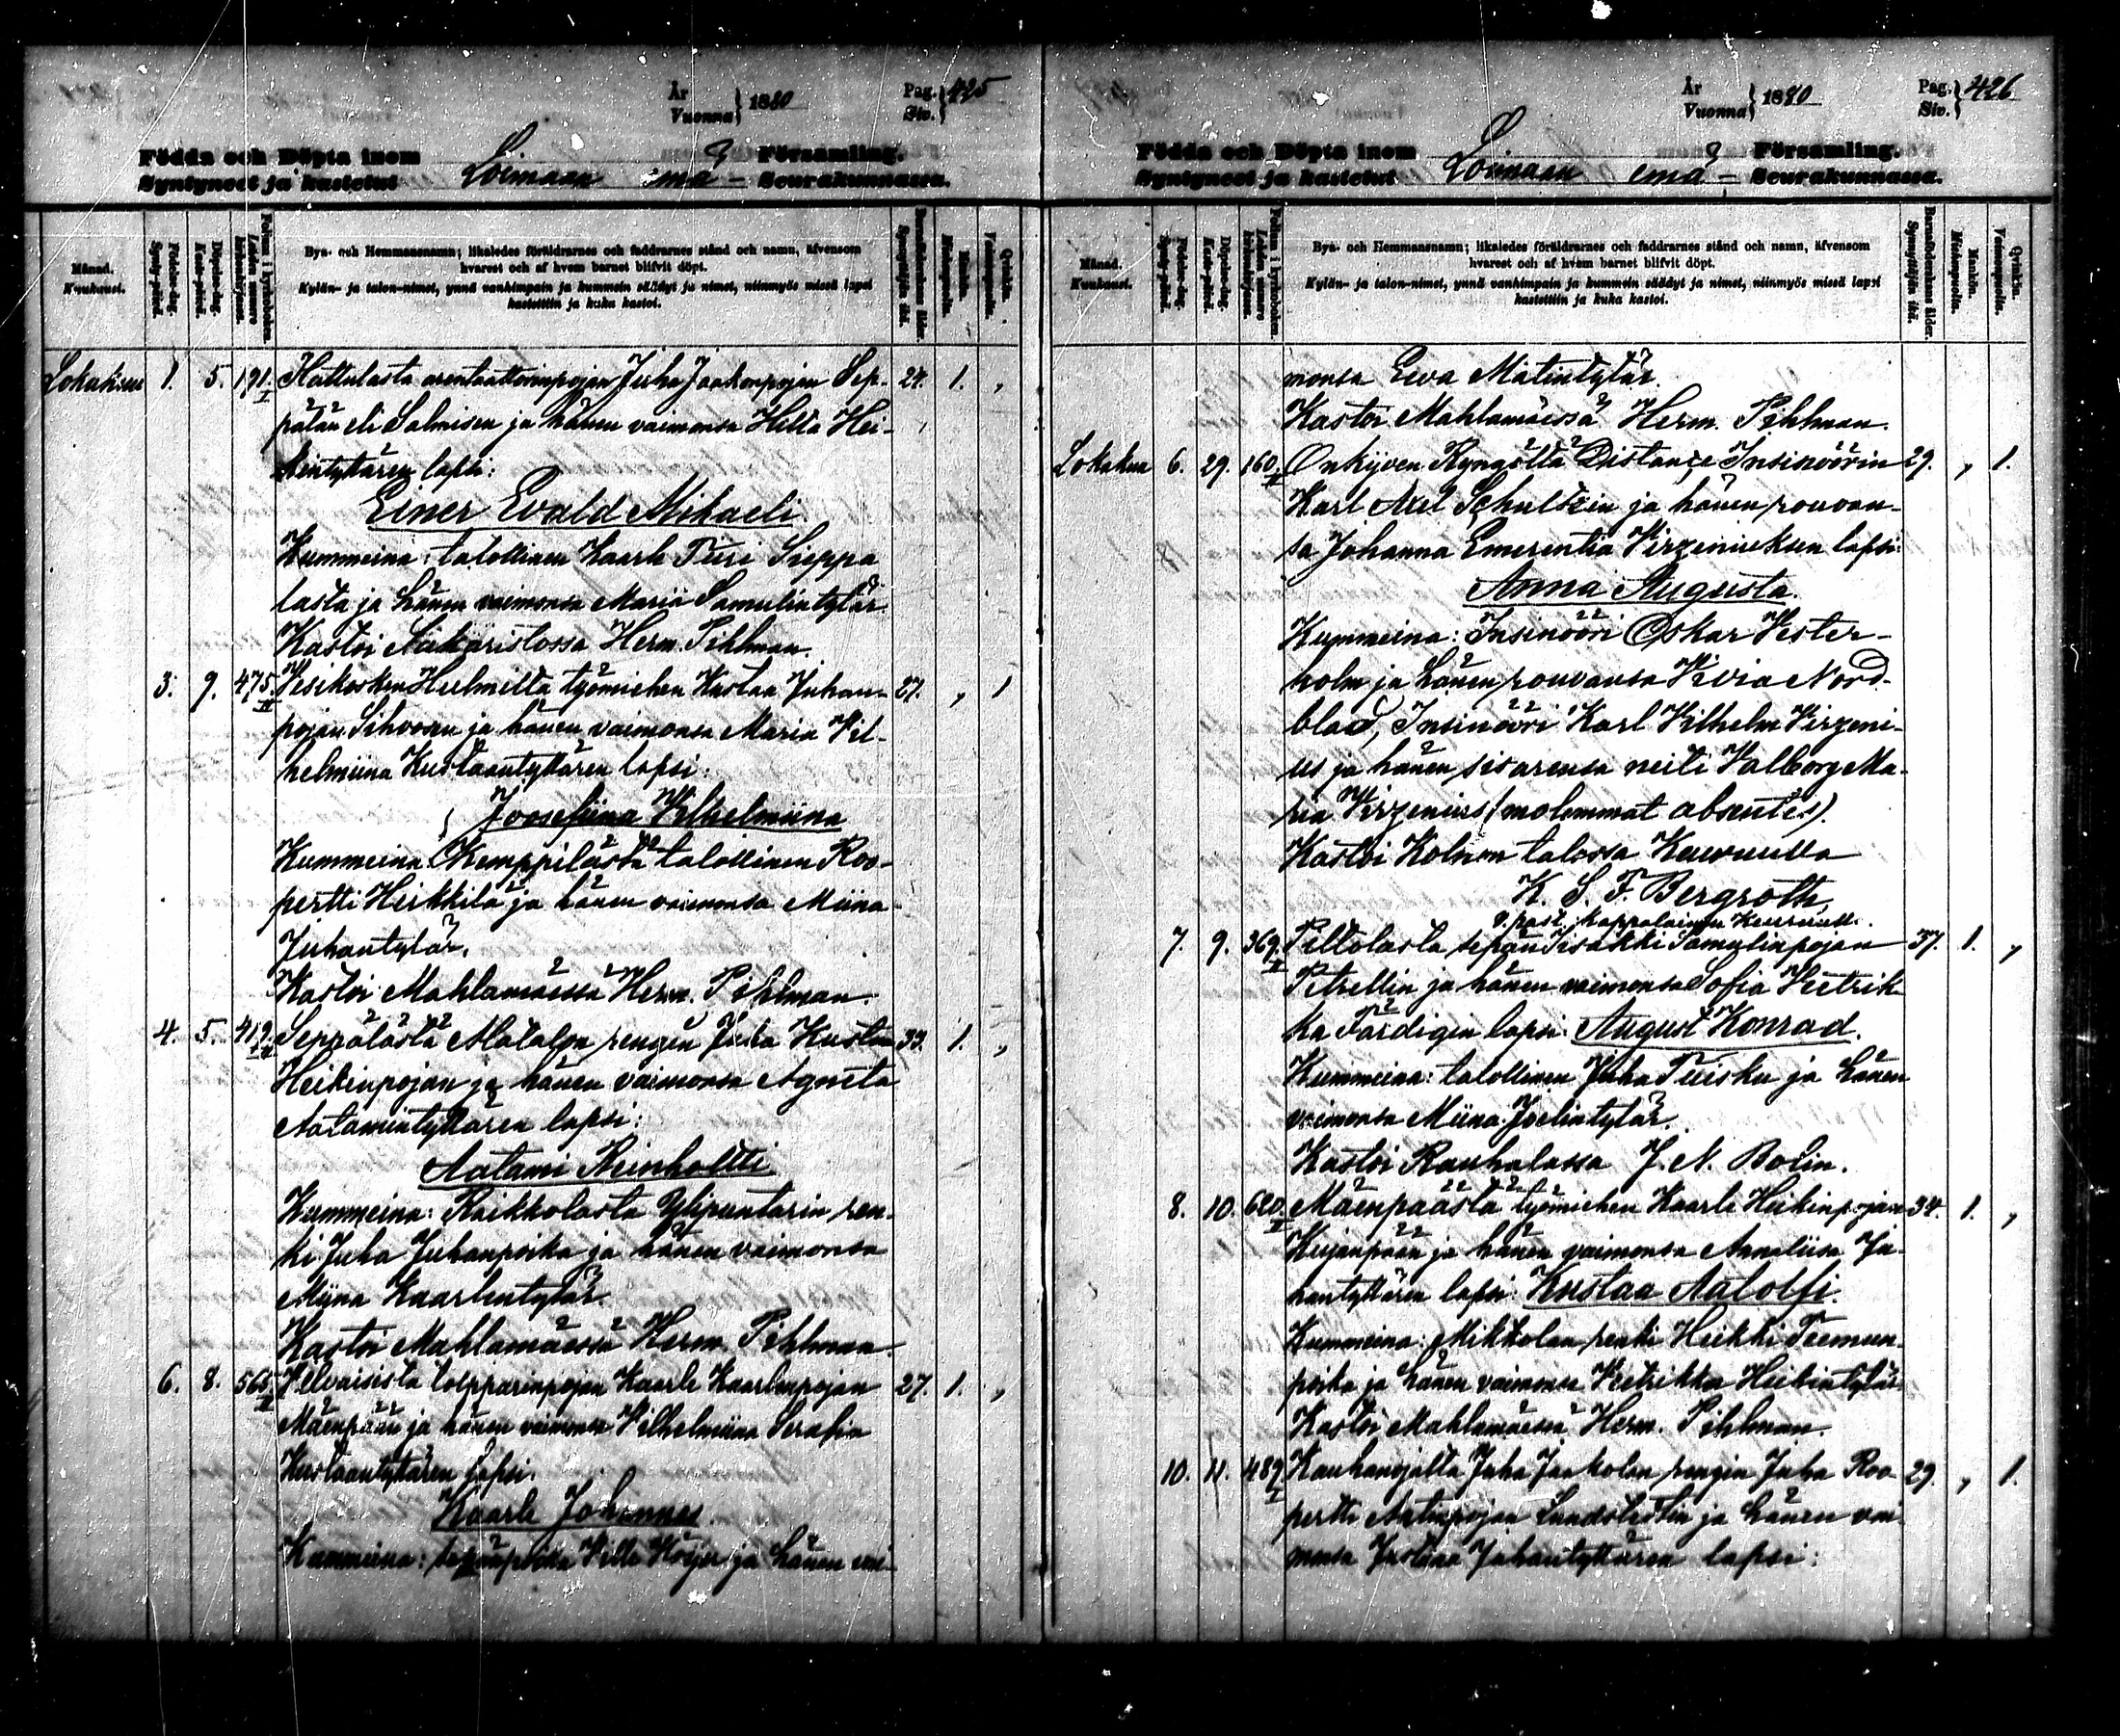 År
Vuonna } 1880 Pag. Siv. } 425
Födda och Döpta inom Församling.
Syntyneet ja kastetut Loimaan emä- Seurakunnassa.
Månad. Kuukausi.
Födelse-dag. Synty-päivä.
Döpelse-dag. Kaste-päivä.
Folium i kyrkoboken. Lehden numero kirkonkirjassa.
Bya- och Hemmansnamn; likaledes föräldrarnes och faddrarnes stånd och namn, äfvensom
hvarest och af hvem barnet blifvit döpt.
Kylän- ja talon-nimet, ynnä vanhimpain ja kummein säädyt ja nimet, niinmyös missä lapsi
kastettiin ja kuka kastoi.
Barnaföderskans ålder. Synnyttäjän ikä.
Mankön. Miehenpuolia.
Qvinkön. Vaimonpuolia.
Lokakuu 1. 5. 191. I Hattulasta arentaattorinpojan Juha Jaakonpojan Sep- 24. 1. „
pälän eli Salmisen ja hänen vaimonsa Hilta Hei-
kintyttären lapsi:
Einer Evald Mikaeli.
Kummeina: talollinen Kaarle Turi Sieppa
lasta ja hänen vaimonsa Maria Samulintytär.
Kastoi Herm. Pihlman.
3. 9. 475. II Vesikosken työmiehen Kustaa Juhan- 27. „ 1
pojan Sihvosen ja hänen vaimonsa Maria Vil-
helmiina Kustaantyttären lapsi:
Joosefiina Vilhelmiina
Kummeina: Kemppilästä talollinen Roo-
pertti Heikkilä ja hänen vaimonsa Miina
Juhantytär.
Kastoi Mahlamäessä Herm. Pihlman.
4. 5. 419. II Seppälästä Matalan rengin Juha Kustaa 33. 1. „
Heikinpojan ja hänen vaimonsa Agneta
Aatamintyttären lapsi:
Aatami Reinholtti
Kummeina: Raikkolasta Ylipuntarin ren-
ki Juha Juhanpoika ja hänen vaimonsa
Miina Kaarlentytär.
Kastoi Mahlamäessä Herm. Pihlman.
6. 8. 565. II torpparinpojan Kaarle Kaarlenpojan 27. 1. „
Mäenpään ja hänen vaimonsa Vilhelmiina Serafia
Kustaantyttären lapsi.
Kaarle Johannes.
Kummeina: Ville Höijer ja hänen vai-
År
Vuonna } 1880 Pag. Siv. } 426
Födda och Döpta inom Församling.
Syntyneet ja kastetut Loimaan emä- Seurakunnassa.
Månad. Kuukausi.
Födelse-dag. Synty-päivä.
Döpelse-dag. Kaste-päivä.
Folium i kyrkoboken. Lehden numero kirkonkirjassa.
Bya- och Hemmansnamn; likaledes föräldrarnes och faddrarnes stånd och namn, äfvensom
hvarest och af hvem barnet blifvit döpt.
Kylän- ja talon-nimet, ynnä vanhimpain ja kummein säädyt ja nimet, niinmyös missä lapsi
kastettiin ja kuka kastoi.
Barnaföderskans ålder. Synnyttäjän ikä.
Mankön. Miehenpuolia.
Qvinkön. Vaimonpuolia.
monsa Eeva Matintytär.
Kastoi Mahlamäessä Herm. Pihlman.
Lokakuu 6. 29. 160. II Onkijoen Distance Insinöörin 29. „ 1.
Karl Axel Schultzin ja hänen rouvan-
sa Johanna Emerentia Virzeniuksen lapsi:
Anna Augusta.
Kummeina: Insinööri Oskar Vester-
holm ja hänen rouvansa Nord-
blad, Insinööri Karl Vilhelm Virzeni-
us ja hänen sisarensa neiti Valborg Ma-
ria Virzenius (molemmat absentes).
Kastoi talossa Keuruulla
K. S. F. Bergroth,
v. past. kappalainen Keuruulla.
7. 9. 369. II Peltolasta sepän Iisakki Samulinpojan 37. 1. „
Petrellin ja hänen vaimonsa Sofia Veetrik-
ka Färdigen lapsi: August Konrad.
Kummeina: talollinen Juha Tuisku ja hänen
vaimonsa Miina Joelintytär.
Kastoi Rauhalassa J. N. Bolin.
8. 10. 620. II Mäenpäästä työmiehen Kaarle Heikinpojan 34. 1. „
Kujanpään ja hänen vaimonsa Annaliisa Ju-
hantyttären lapsi: Kustaa Aatolfi.
Kummeina: Mikkolan renki Heikki Teemun-
poika ja hänen vaimonsa Veetrikka Heikintytär
Kastoi Mahlamäessä Herm. Pihlman.
10. 11. 489. I Kauhanojalta Juha Jaakolan rengin Juha Roo- 29. „ 1.
pertti Antinpojan Lundstedtin ja hänen vai-
monsa Justiina Juhantyttären lapsi: